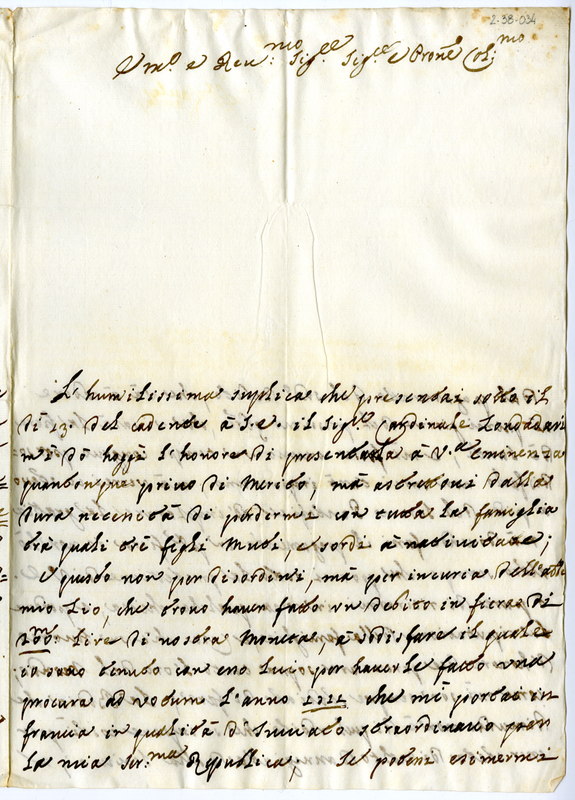 2-38-034
Em.o e Reu.mo Sig.re Sig.re e Pron̄e Col.mo
L'humilissima suplica che presentai sotto il
di 13. del cadente à S.e. il Sig.r Cardinale Zondadari
mi dò hoggi l'honore di presentarla à V.a Eminenza
quantonque priuo di Merito, mà astrettoui dalla
dura necessità di perdermi con tutta la famiglia
trà quali trè figli Muti, e sordi à natiuitate;
E questo non per disordini, mà per incuria dell'
mio Zio, che trouo hauer fatto un debito in fiera di
lire di nostra Moneta, à sodisfare il quale
io sono tenuto con esso lui, per hauerle fatto una
procura ad uotum l'anno 1711 che mi portai in
francia in qualità d'Inuiato straordinario per
la mia Ser.ma Republica; Se potessi esimermi